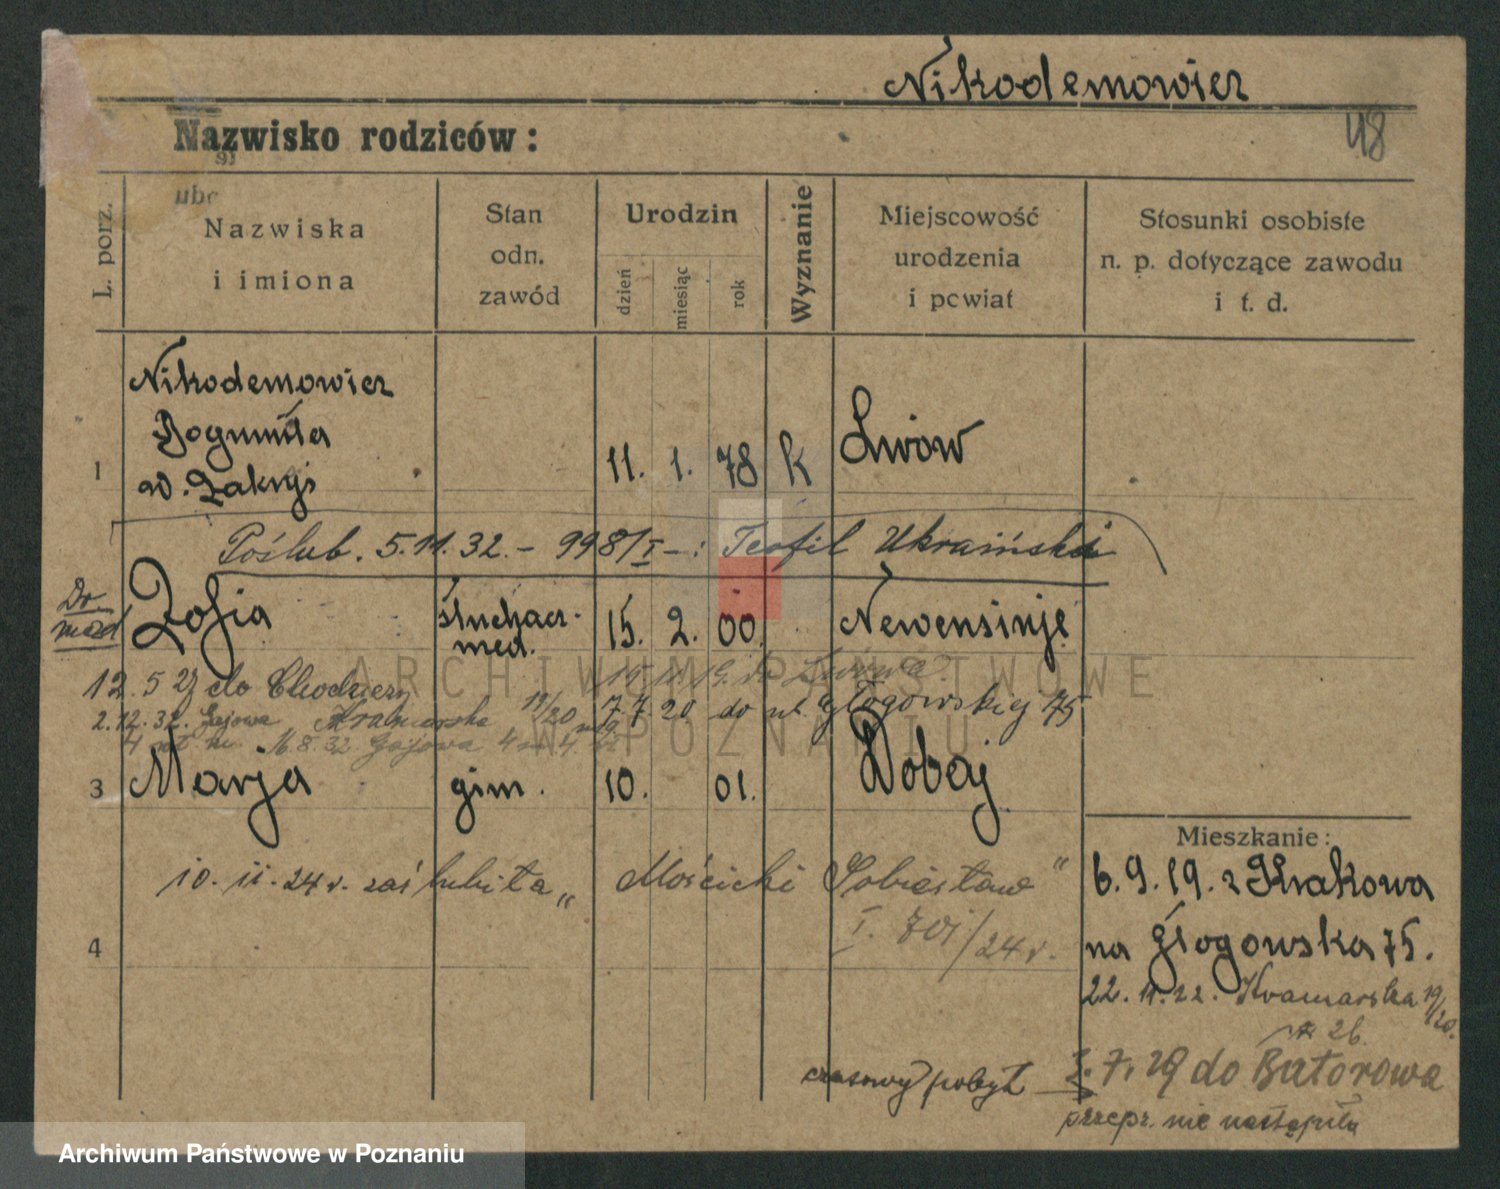 Nikodemowicz
48
Nazwisko rodziców:
L. porz.
Nazwiska
i imiona
Stan
odn.
zawód
Urodzin
dzień
miesiąc
rok
Wyznanie
Miejscowość
urodzenia
i powiat
Stosunki osobiste
n. p. dotyczące zawodu
i t. d.
Nikodemowicz
Bogumiła
1 w. Zakrys 11. 1. 78 k Lwów
Poślub. 5.11.32. - 998/I - : Teofil Ukraiński
Dr
med
Zofia słuchacz. med. 15. 2. 00. Newensinje
12. 5 27 do Chodzieży 15. 11. 19. do Lwowa
2.12.32. Gajowa Kramarska 19/20 7.7.20 do ul. Głogowskiej 75
4 M. 8. 32 Gajowa 4 m 4
3 Marja gim. 10. 01. Dobaj
10. 11. 24 r. zaślubiła „Mościcki Sobiesław"
I. 701/24 r.
4
Mieszkanie:
6.9.19. z Krakowa
na Głogowska 75.
22. 11. 22. Kramarska 19/20.
26
czasowy pobyt 3. 7. 29 do Batorowa
przepr. nie nastąpiła
ARCHIWUM PAŃSTWOWE
W POZNANIU
Archiwum Państwowe w Poznaniu